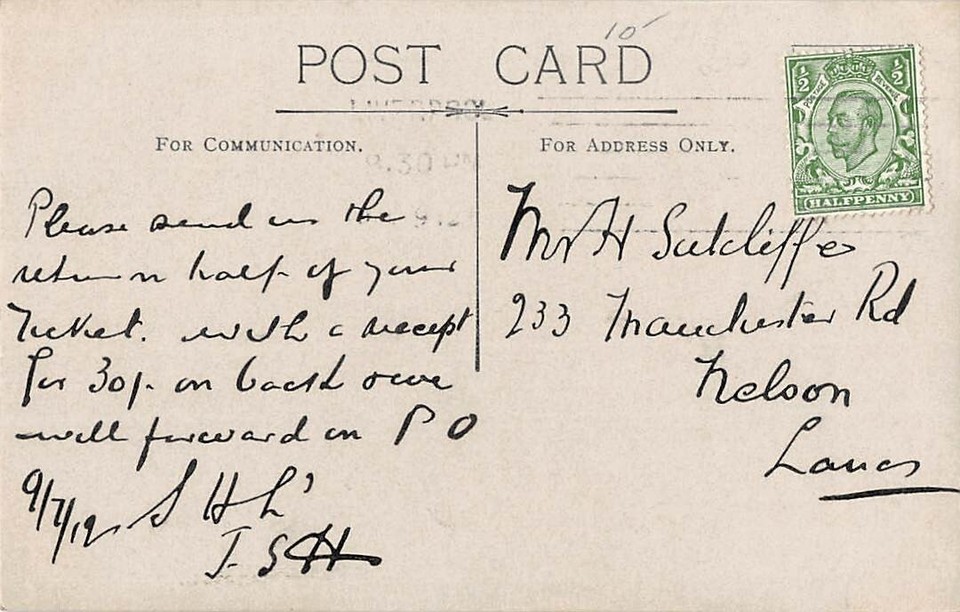 10
POST CARD
LIVERPOOL
FOR COMMUNICATION.
FOR ADDRESS ONLY.
½ POSTAGE REVENUE ½
HALFPENNY
.30 PM
Please send us the
return half of your
Ticket. with a receipt
for 30/- on back & we
will forward on P O
9/7/12 S H L
J. S
Mr H Sutcliffe
233 Manchester Rd
Nelson
Lancs